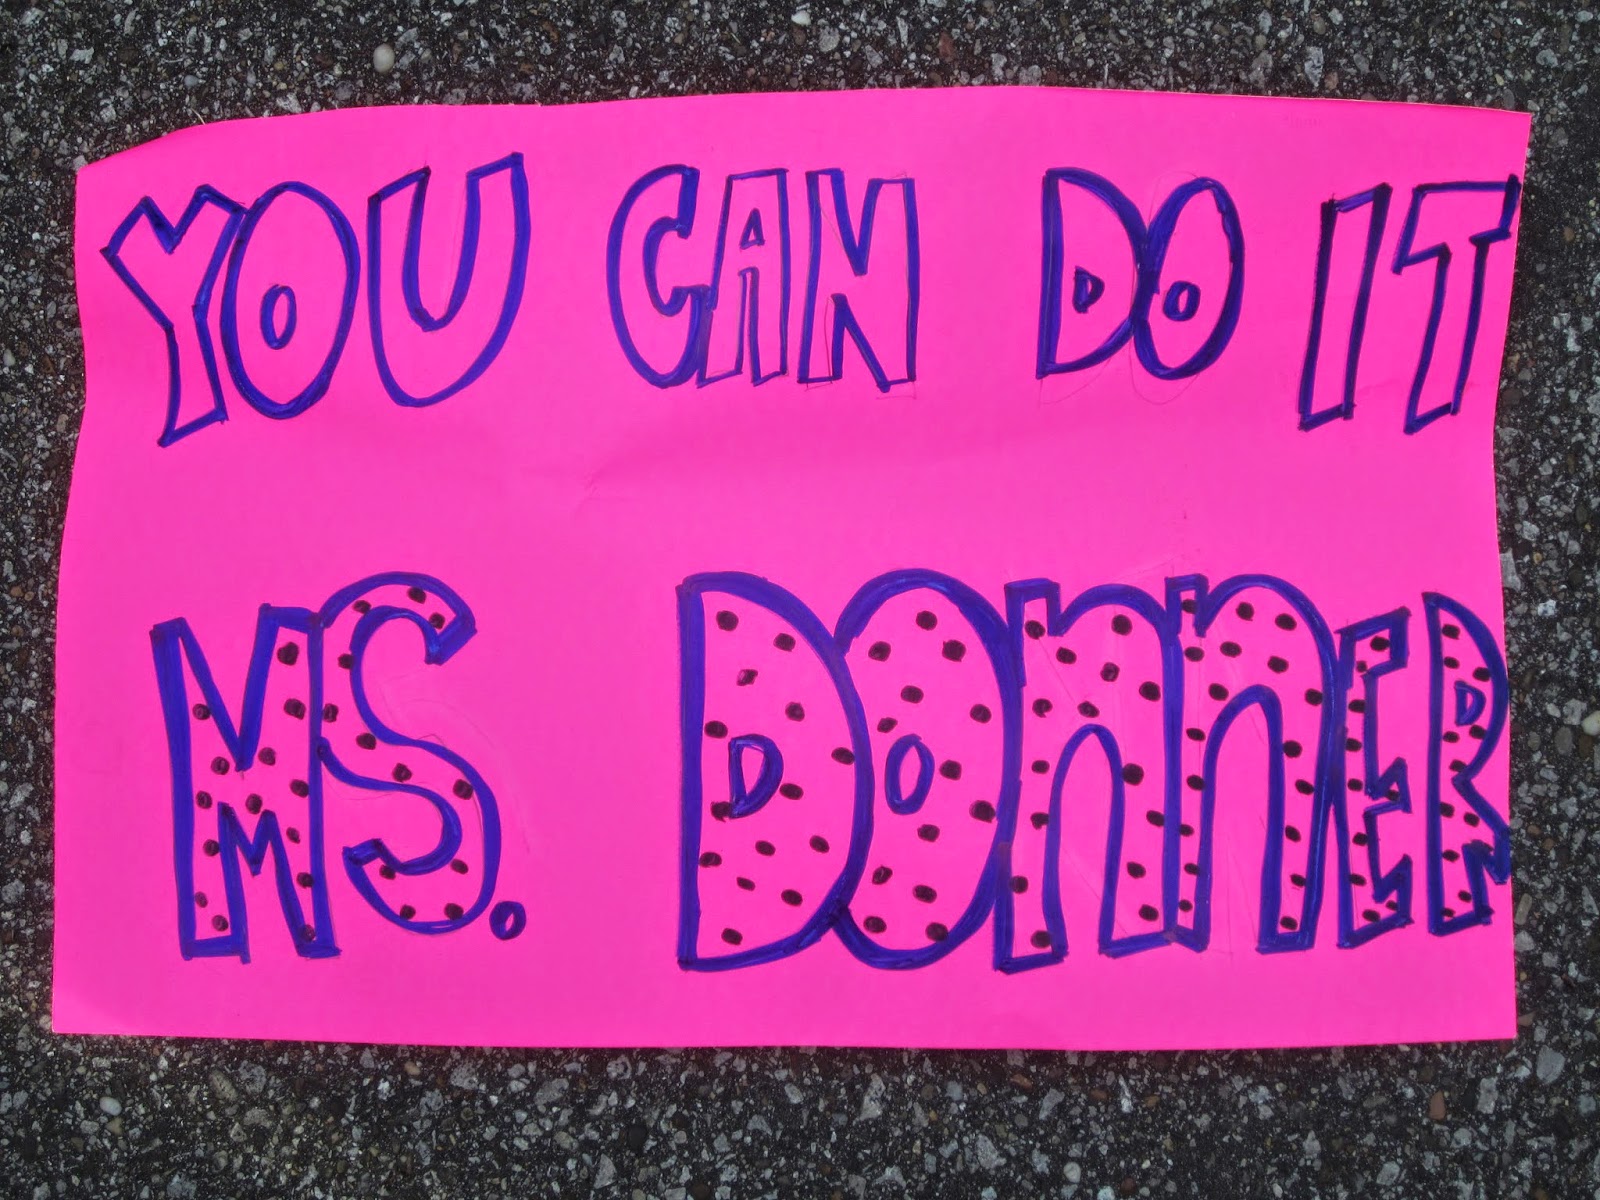 YOU CAN DO IT
MS. DONNER